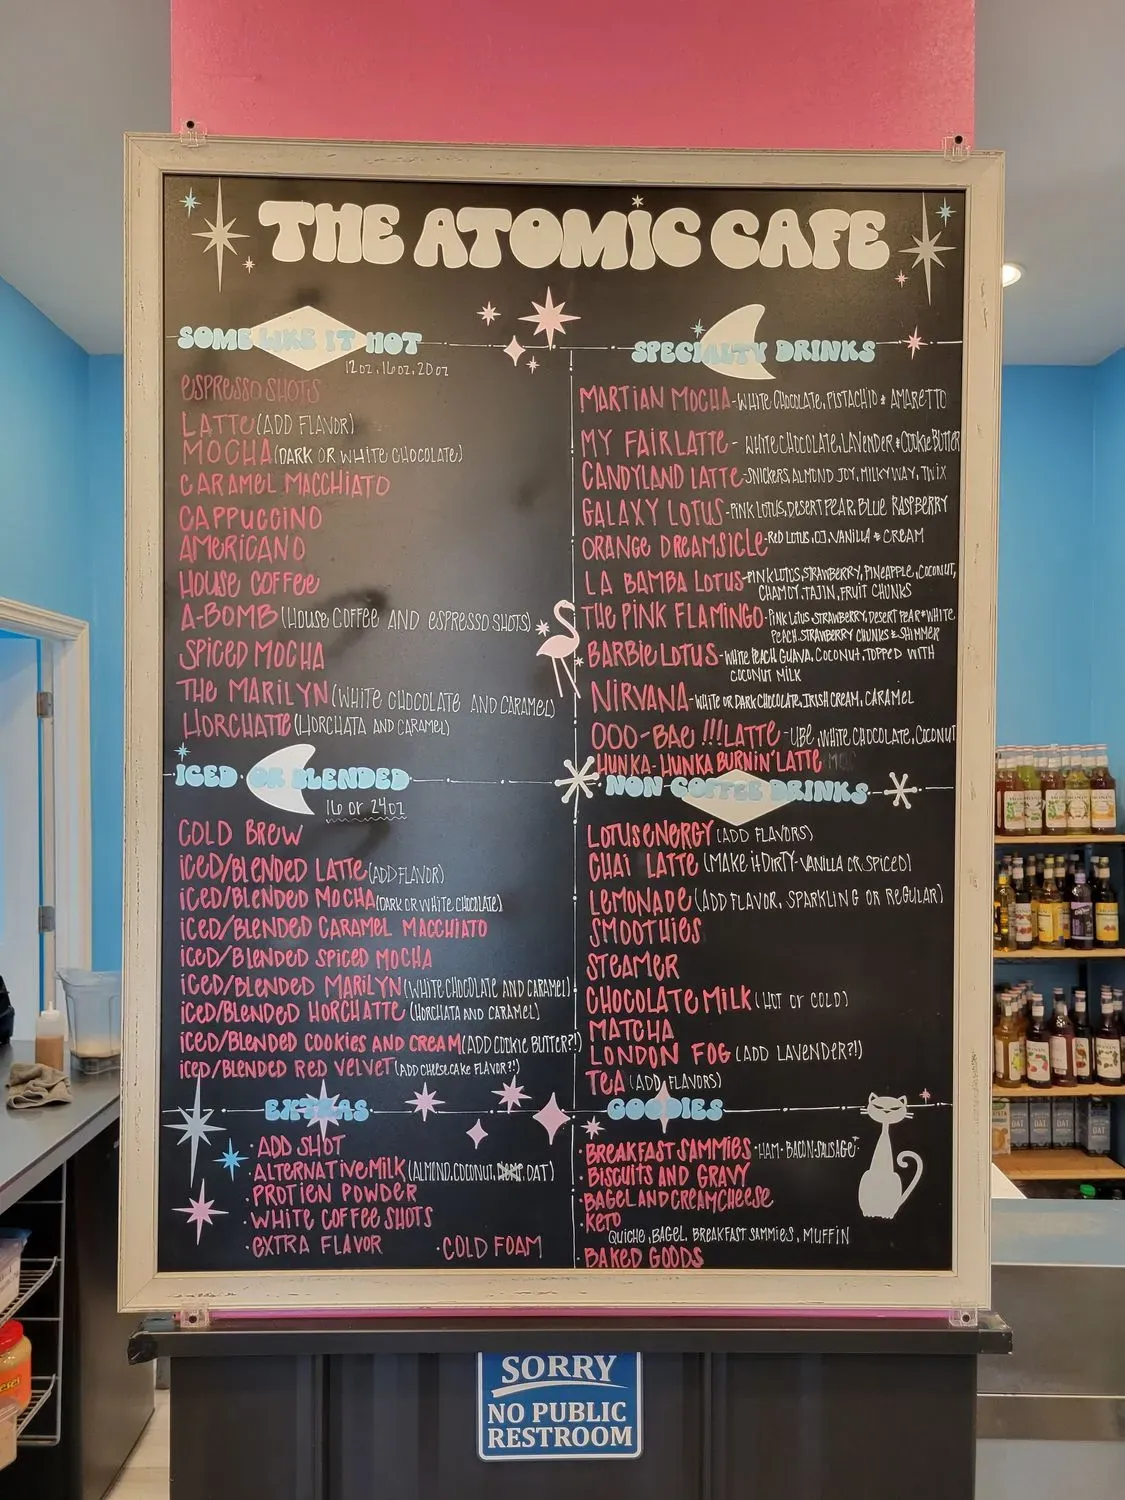 THE ATOMIC CAFE
SOME LIKE IT HOT
12oz, 16oz, 20oz
ESPRESSO SHOTS
LATTE (ADD FLAVOR)
MOCHA (DARK OR WHITE CHOCOLATE)
CARAMEL MACCHIATO
CAPPUCCINO
AMERICANO
HOUSE COFFEE
A-BOMB (HOUSE COFFEE AND ESPRESSO SHOTS)
SPICED MOCHA
THE MARILYN (WHITE CHOCOLATE AND CARAMEL)
HORCHATTE (HORCHATA AND CARAMEL)
ICED OR BLENDED
16 or 24oz
COLD BREW
ICED/BLENDED LATTE (ADD FLAVOR)
ICED/BLENDED MOCHA (DARK OR WHITE CHOCOLATE)
ICED/BLENDED CARAMEL MACCHIATO
ICED/BLENDED SPICED MOCHA
ICED/BLENDED MARILYN (WHITE CHOCOLATE AND CARAMEL)
ICED/BLENDED HORCHATTE (HORCHATA AND CARAMEL)
ICED/BLENDED COOKIES AND CREAM (ADD COOKIE BUTTER?!)
ICED/BLENDED RED VELVET (ADD CHEESECAKE FLAVOR?!)
EXTRAS
· ADD SHOT
· ALTERNATIVE MILK (ALMOND, COCONUT, OAT)
· PROTIEN POWDER
· WHITE COFFEE SHOTS
· EXTRA FLAVOR · COLD FOAM
SPECIALTY DRINKS
MARTIAN MOCHA - WHITE CHOCOLATE, PISTACHIO & AMARETTO
MY FAIR LATTE - WHITE CHOCOLATE, LAVENDER & COOKIE BUTTER
CANDYLAND LATTE - SNICKERS, ALMOND JOY, MILKY WAY, TWIX
GALAXY LOTUS - PINK LOTUS, DESERT PEAR, BLUE RASPBERRY
ORANGE DREAMSICLE - RED LOTUS, OJ, VANILLA & CREAM
LA BAMBA LOTUS - PINK LOTUS, STRAWBERRY, PINEAPPLE, COCONUT,
CHAMOY, TAJIN, FRUIT CHUNKS
THE PINK FLAMINGO - PINK LOTUS, STRAWBERRY, DESERT PEAR & WHITE
PEACH, STRAWBERRY CHUNKS & SHIMMER
BARBIE LOTUS - WHITE PEACH, GUAVA, COCONUT, TOPPED WITH
COCONUT MILK
NIRVANA - WHITE OR DARK CHOCOLATE, IRISH CREAM, CARAMEL
OOO-BAE !!! LATTE - UBE, WHITE CHOCOLATE, COCONUT
HUNKA-HUNKA BURNIN' LATTE
NON COFFEE DRINKS
LOTUS ENERGY (ADD FLAVORS)
CHAI LATTE (MAKE it DIRTY - VANILLA OR SPICED)
LEMONADE (ADD FLAVOR, SPARKLING OR REGULAR)
SMOOTHIES
STEAMER
CHOCOLATE MILK (HOT or COLD)
MATCHA
LONDON FOG (ADD LAVENDER?!)
TEA (ADD FLAVORS)
GOODIES
· BREAKFAST SAMMIES · HAM · BACON · SAUSAGE ·
· BISCUITS AND GRAVY
· BAGEL AND CREAMCHEESE
· KETO
QUICHE, BAGEL, BREAKFAST SAMMIES, MUFFIN
· BAKED GOODS
SORRY
NO PUBLIC
RESTROOM